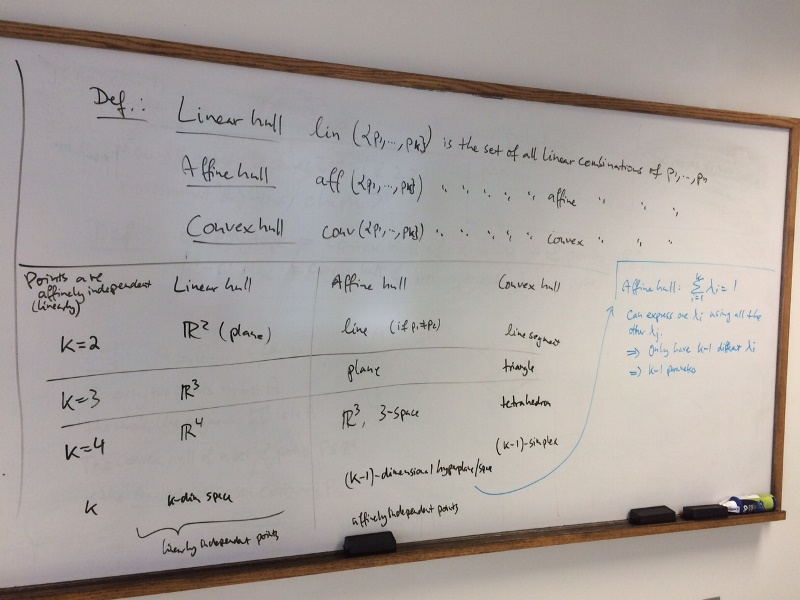 Def.: Linear hull lin ({p1,...,pk}) is the set of all linear combinations of p1,...,pn
Affine hull aff ({p1,...,pk}) " " " " " affine " " "
Convex hull conv ({p1,...,pk}) " " " " " convex " " "
Points are affinely independent (linearly) Linear hull Affine hull Convex hull
K=2 ℝ² (plane) line (if p1≠p2) line segment
K=3 ℝ³ plane triangle
K=4 ℝ⁴ ℝ³, 3-space tetrahedron
K k-dim space (k-1)-dimensional hyperplane/space (k-1)-simplex
linearly independent points affinely independent points
Affine hull: ∑_{i=1}^{k} λi = 1
Can express one λi using all the
other λj.
⇒ Only have k-1 different λi
⇒ k-1 parameters